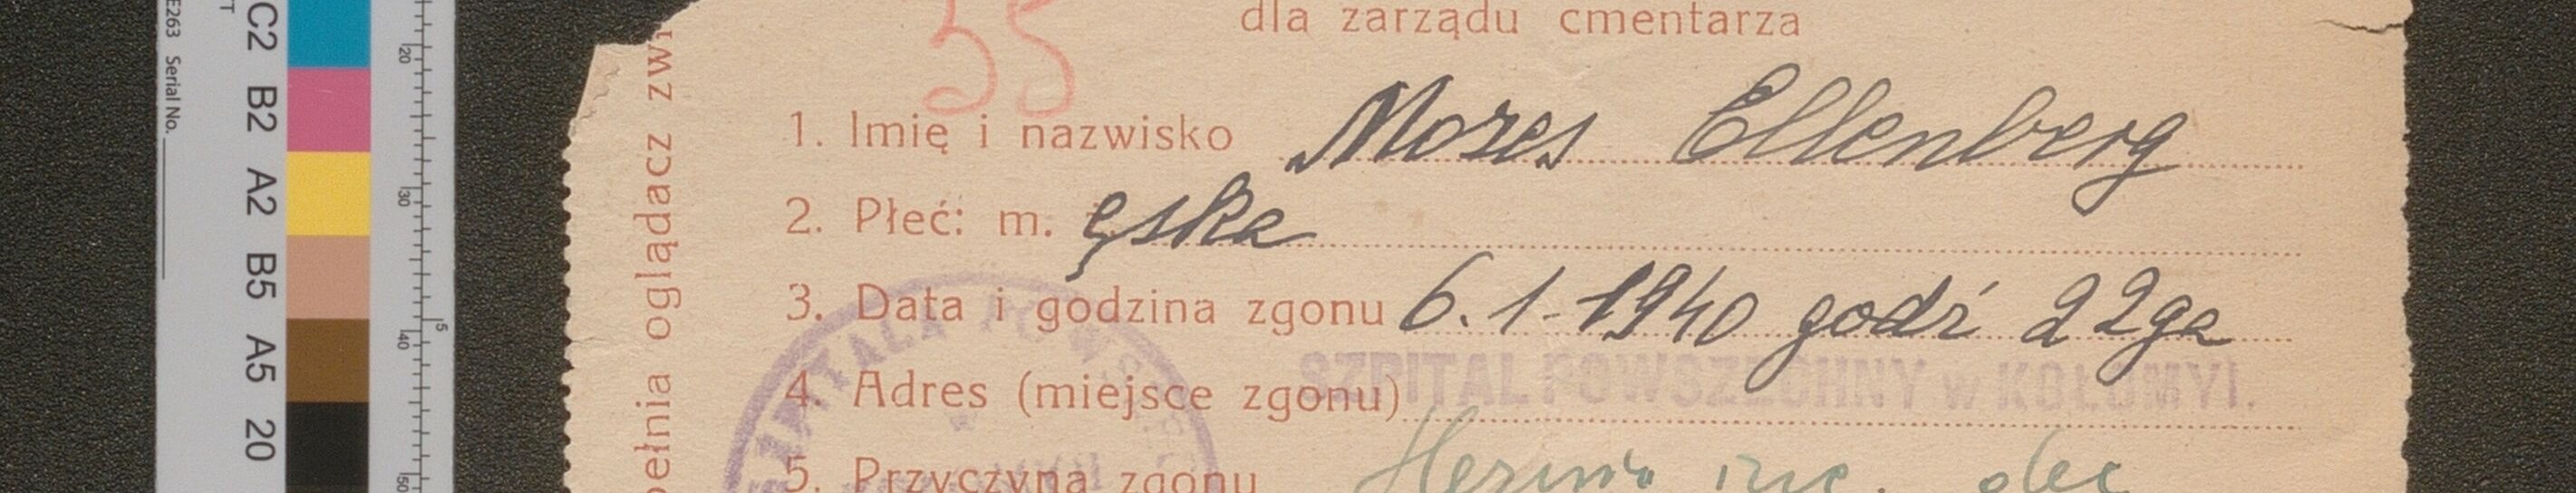 55
dla zarządu cmentarza
1. Imię i nazwisko Mozes Ellenberg
2. Płeć: m. ęska
3. Data i godzina zgonu 6.1-1940 godź 22ga
4. Adres (miejsce zgonu) SZPITAL POWSZECHNY w KOŁOMYI.
5. Przyczyna zgonu
pełnia oglądacz zw
SZPITALA POW
E263 Serial No.
C2 B2 A2 B5 A5 20
20
30
40
50
5